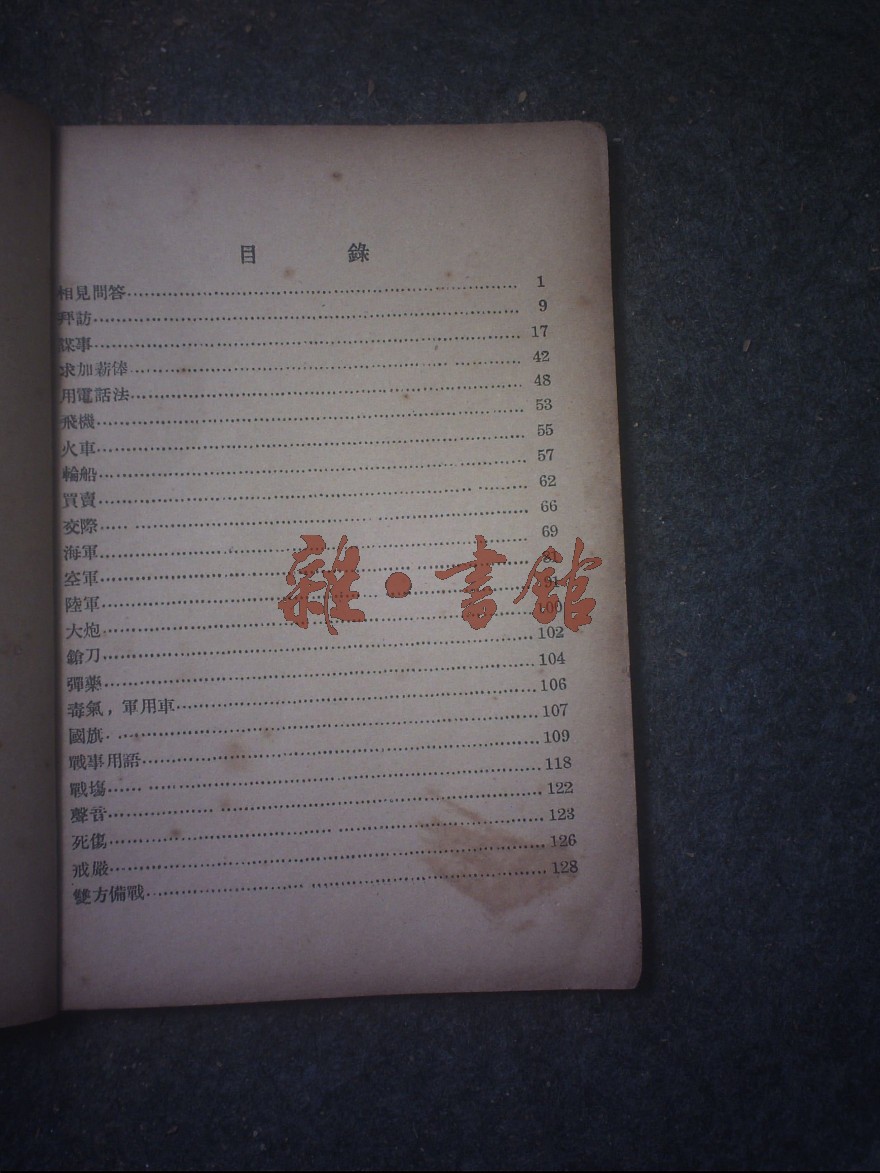 目 錄
相見問答 1
拜訪 9
謀事 17
求加薪俸 42
用電話法 48
飛機 53
火車 55
輪船 57
買賣 62
交際 66
海軍 69
空軍 81
陸軍 91
大炮 100
鎗刀 102
彈藥 104
毒氣，軍用車 106
國旗 107
戰事用語 109
戰塲 118
聲音 122
死傷 123
戒嚴 126
雙方備戰 128
雜·書館